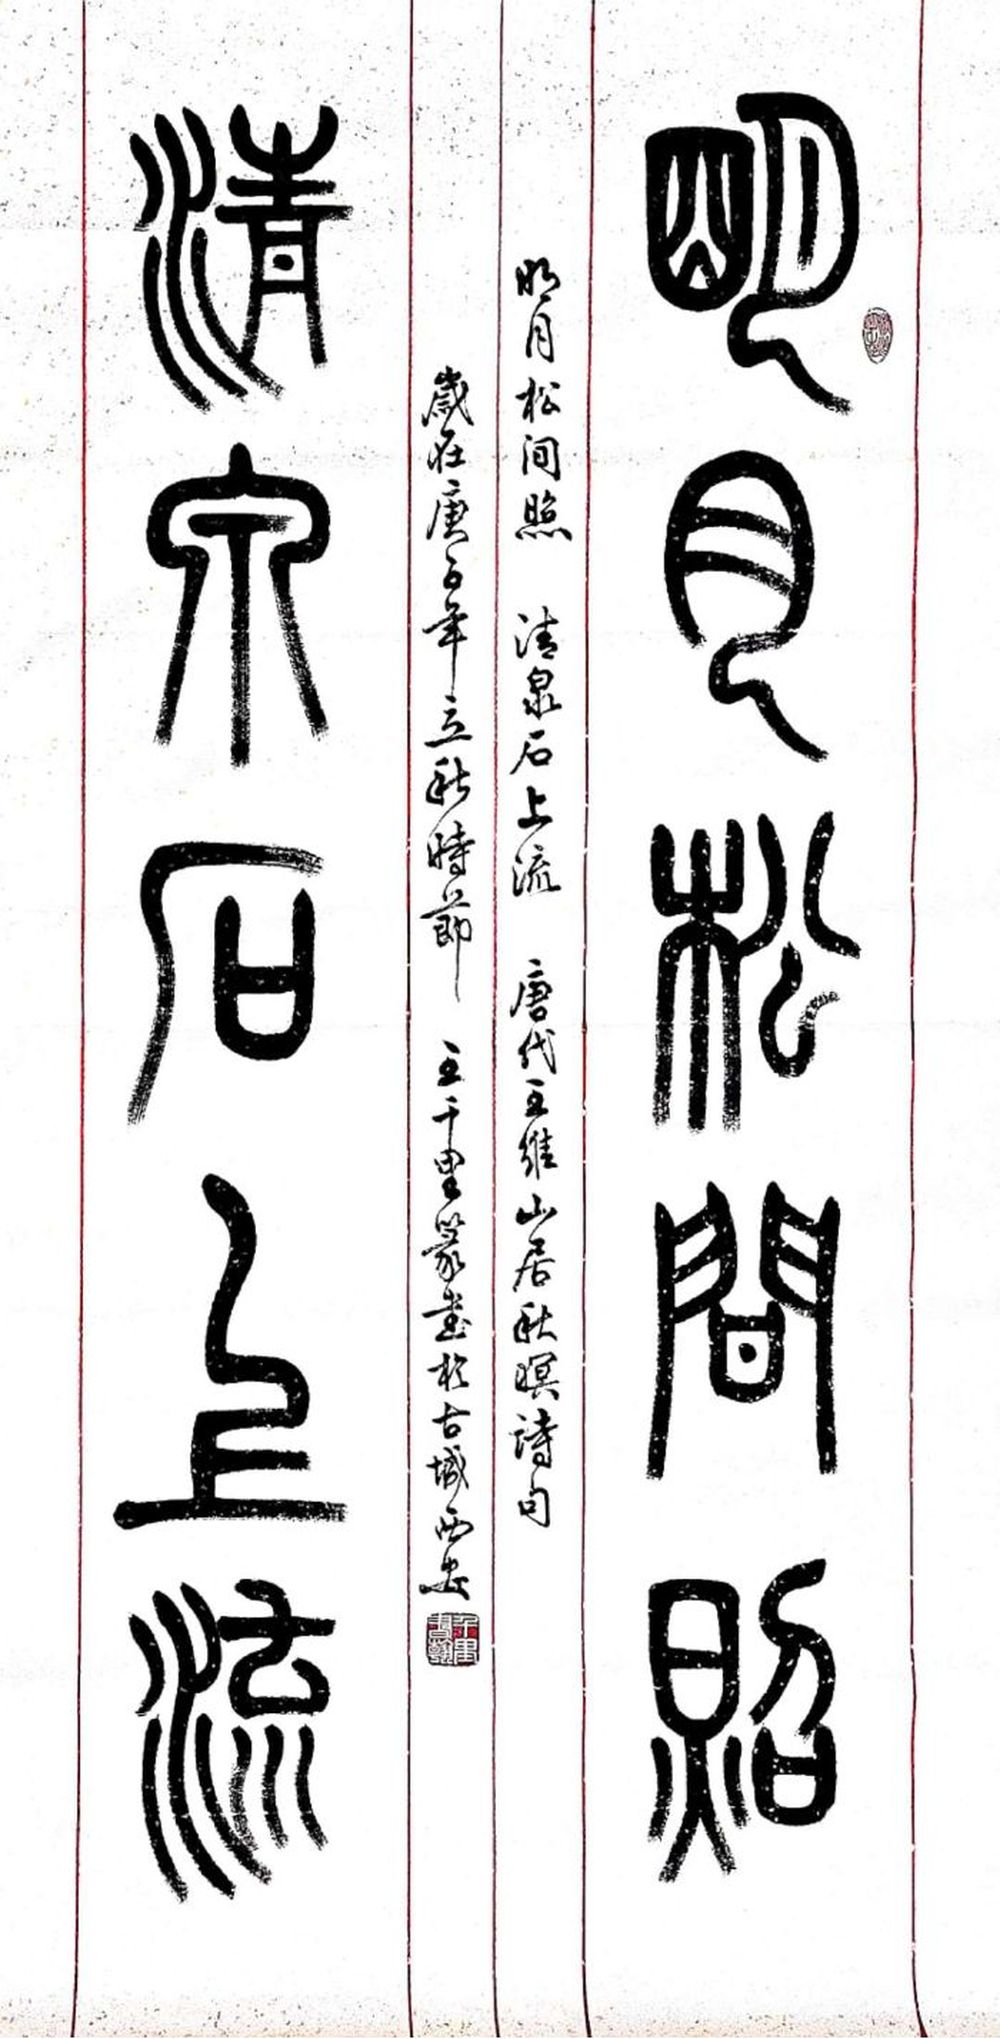 明月松間照
明月松间照 清泉石上流 唐代王维山居秋暝詩句
歲在庚子年立秋時節 王千里篆书於古城西安
清泉石上流
千里